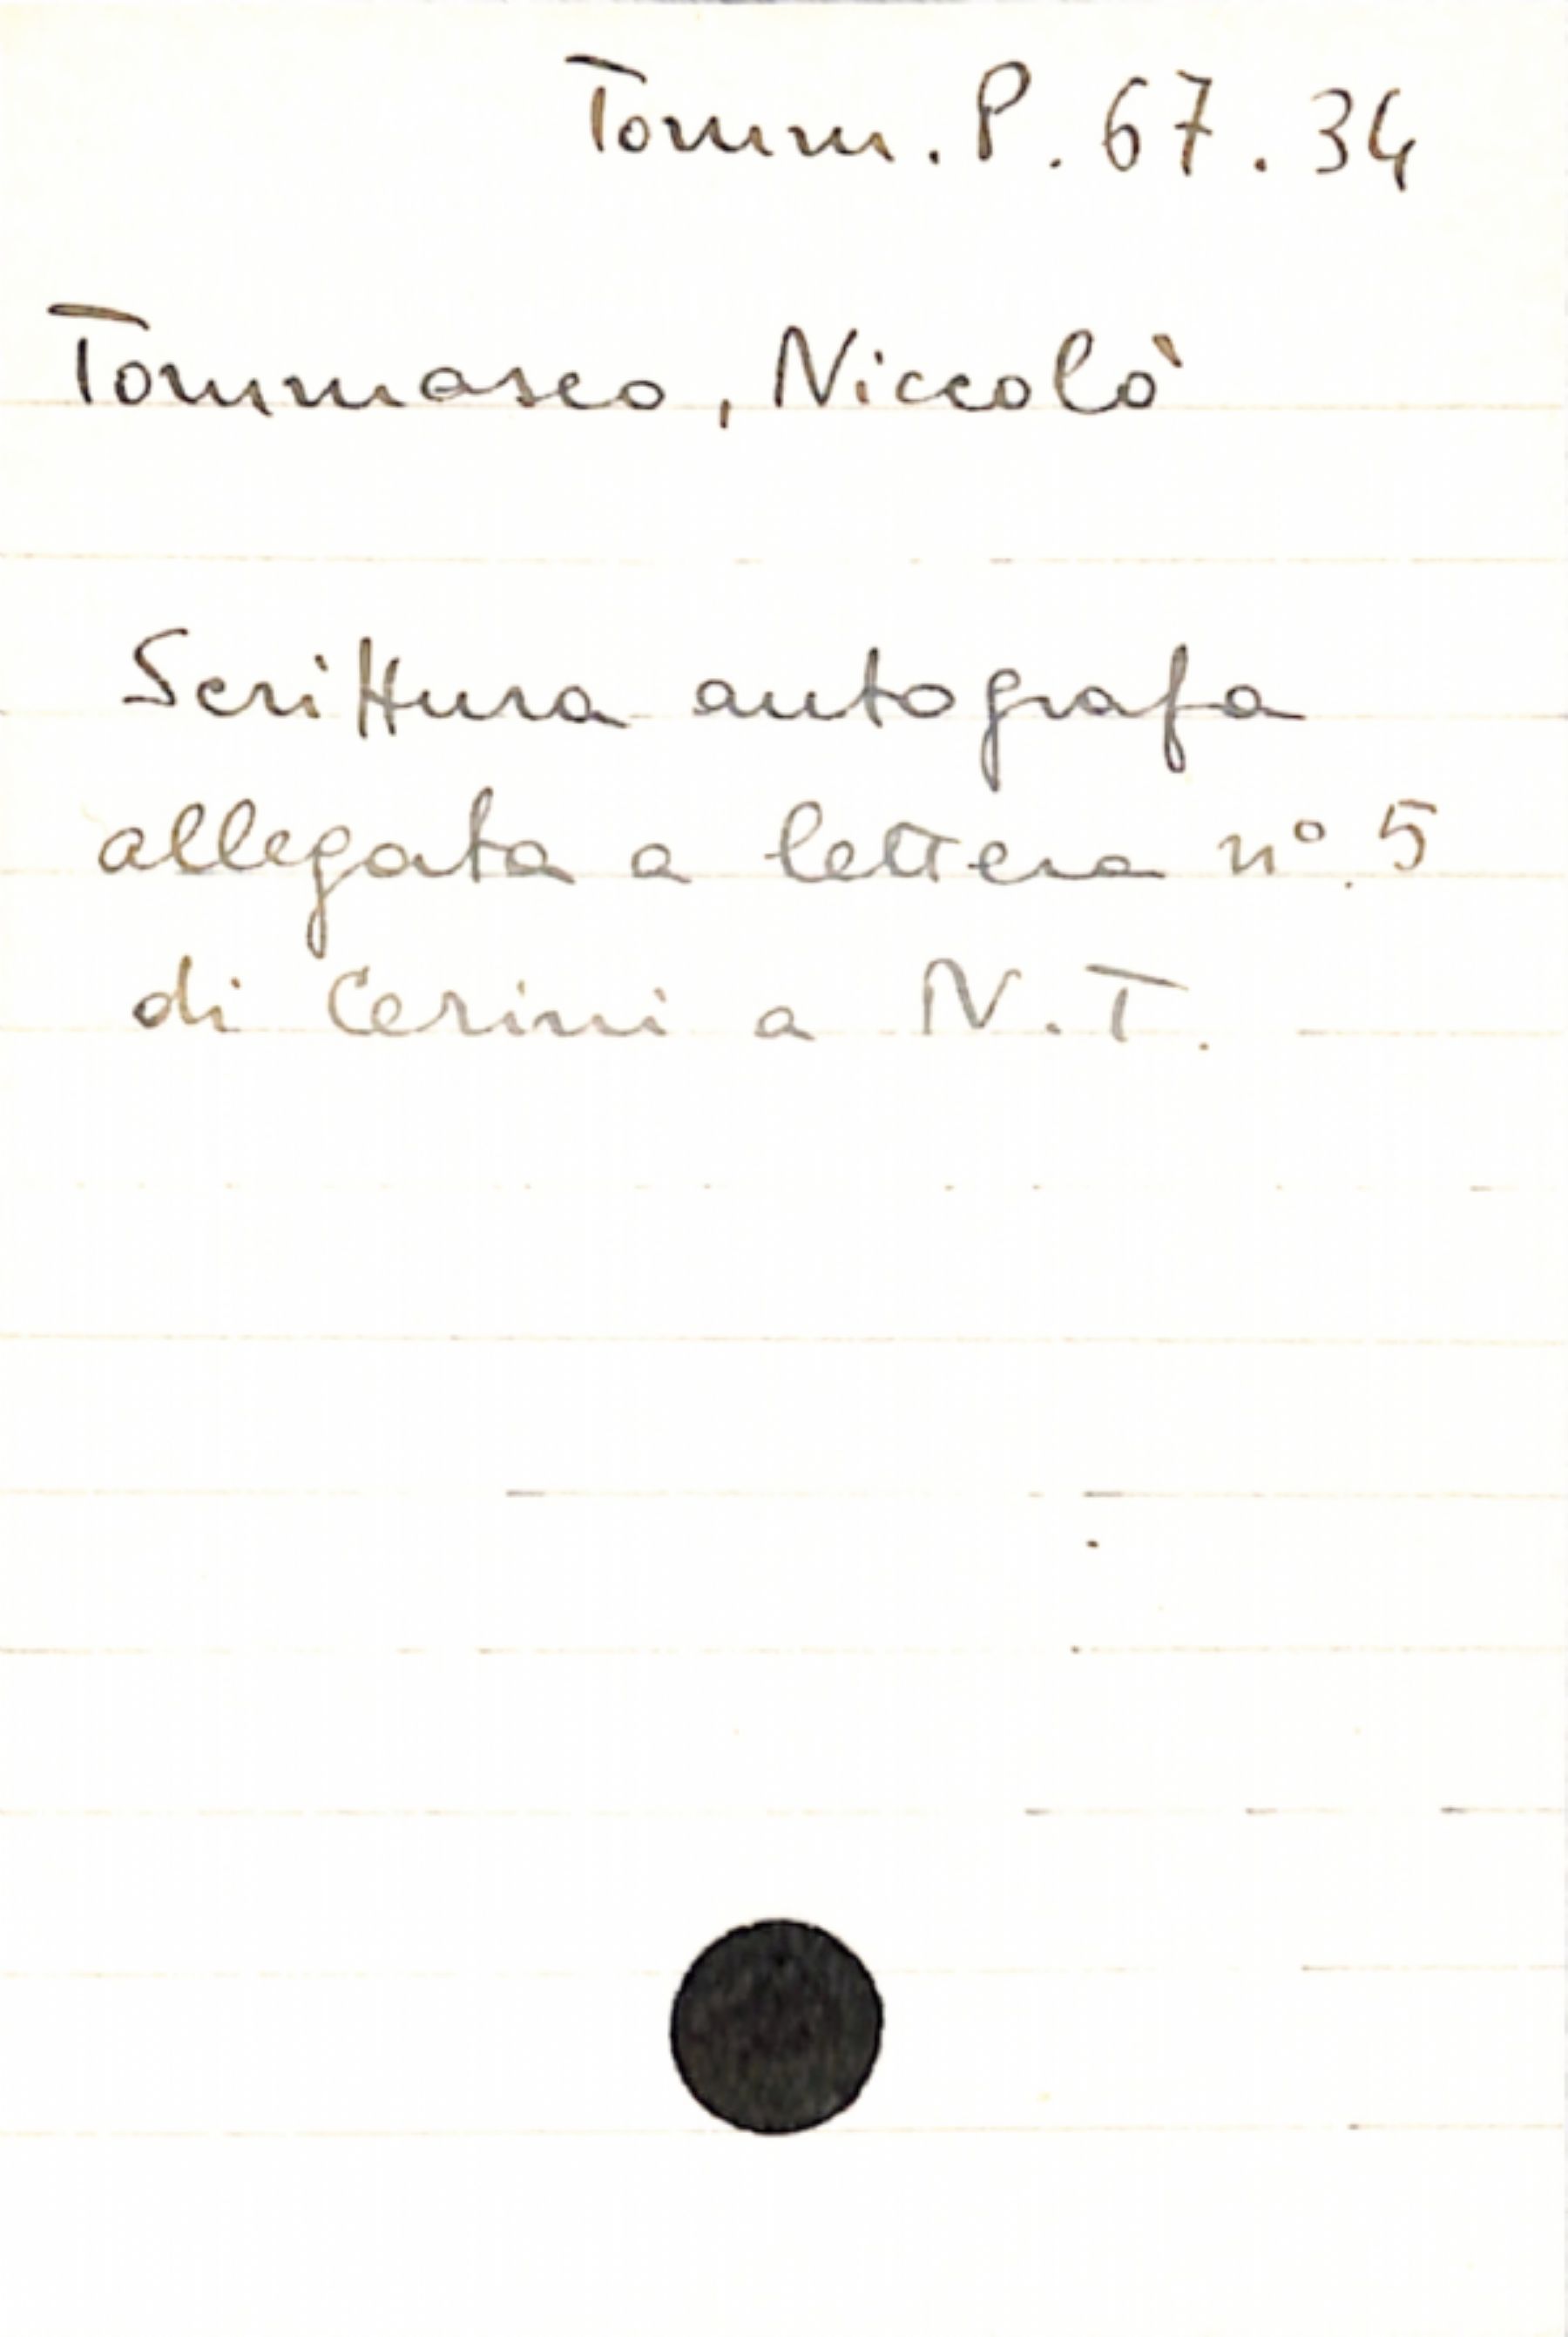 Tomm. P. 67. 34
Tommaseo, Niccolò
Scrittura autografa
allegata a lettera nº 5
di Cerini a N.T.